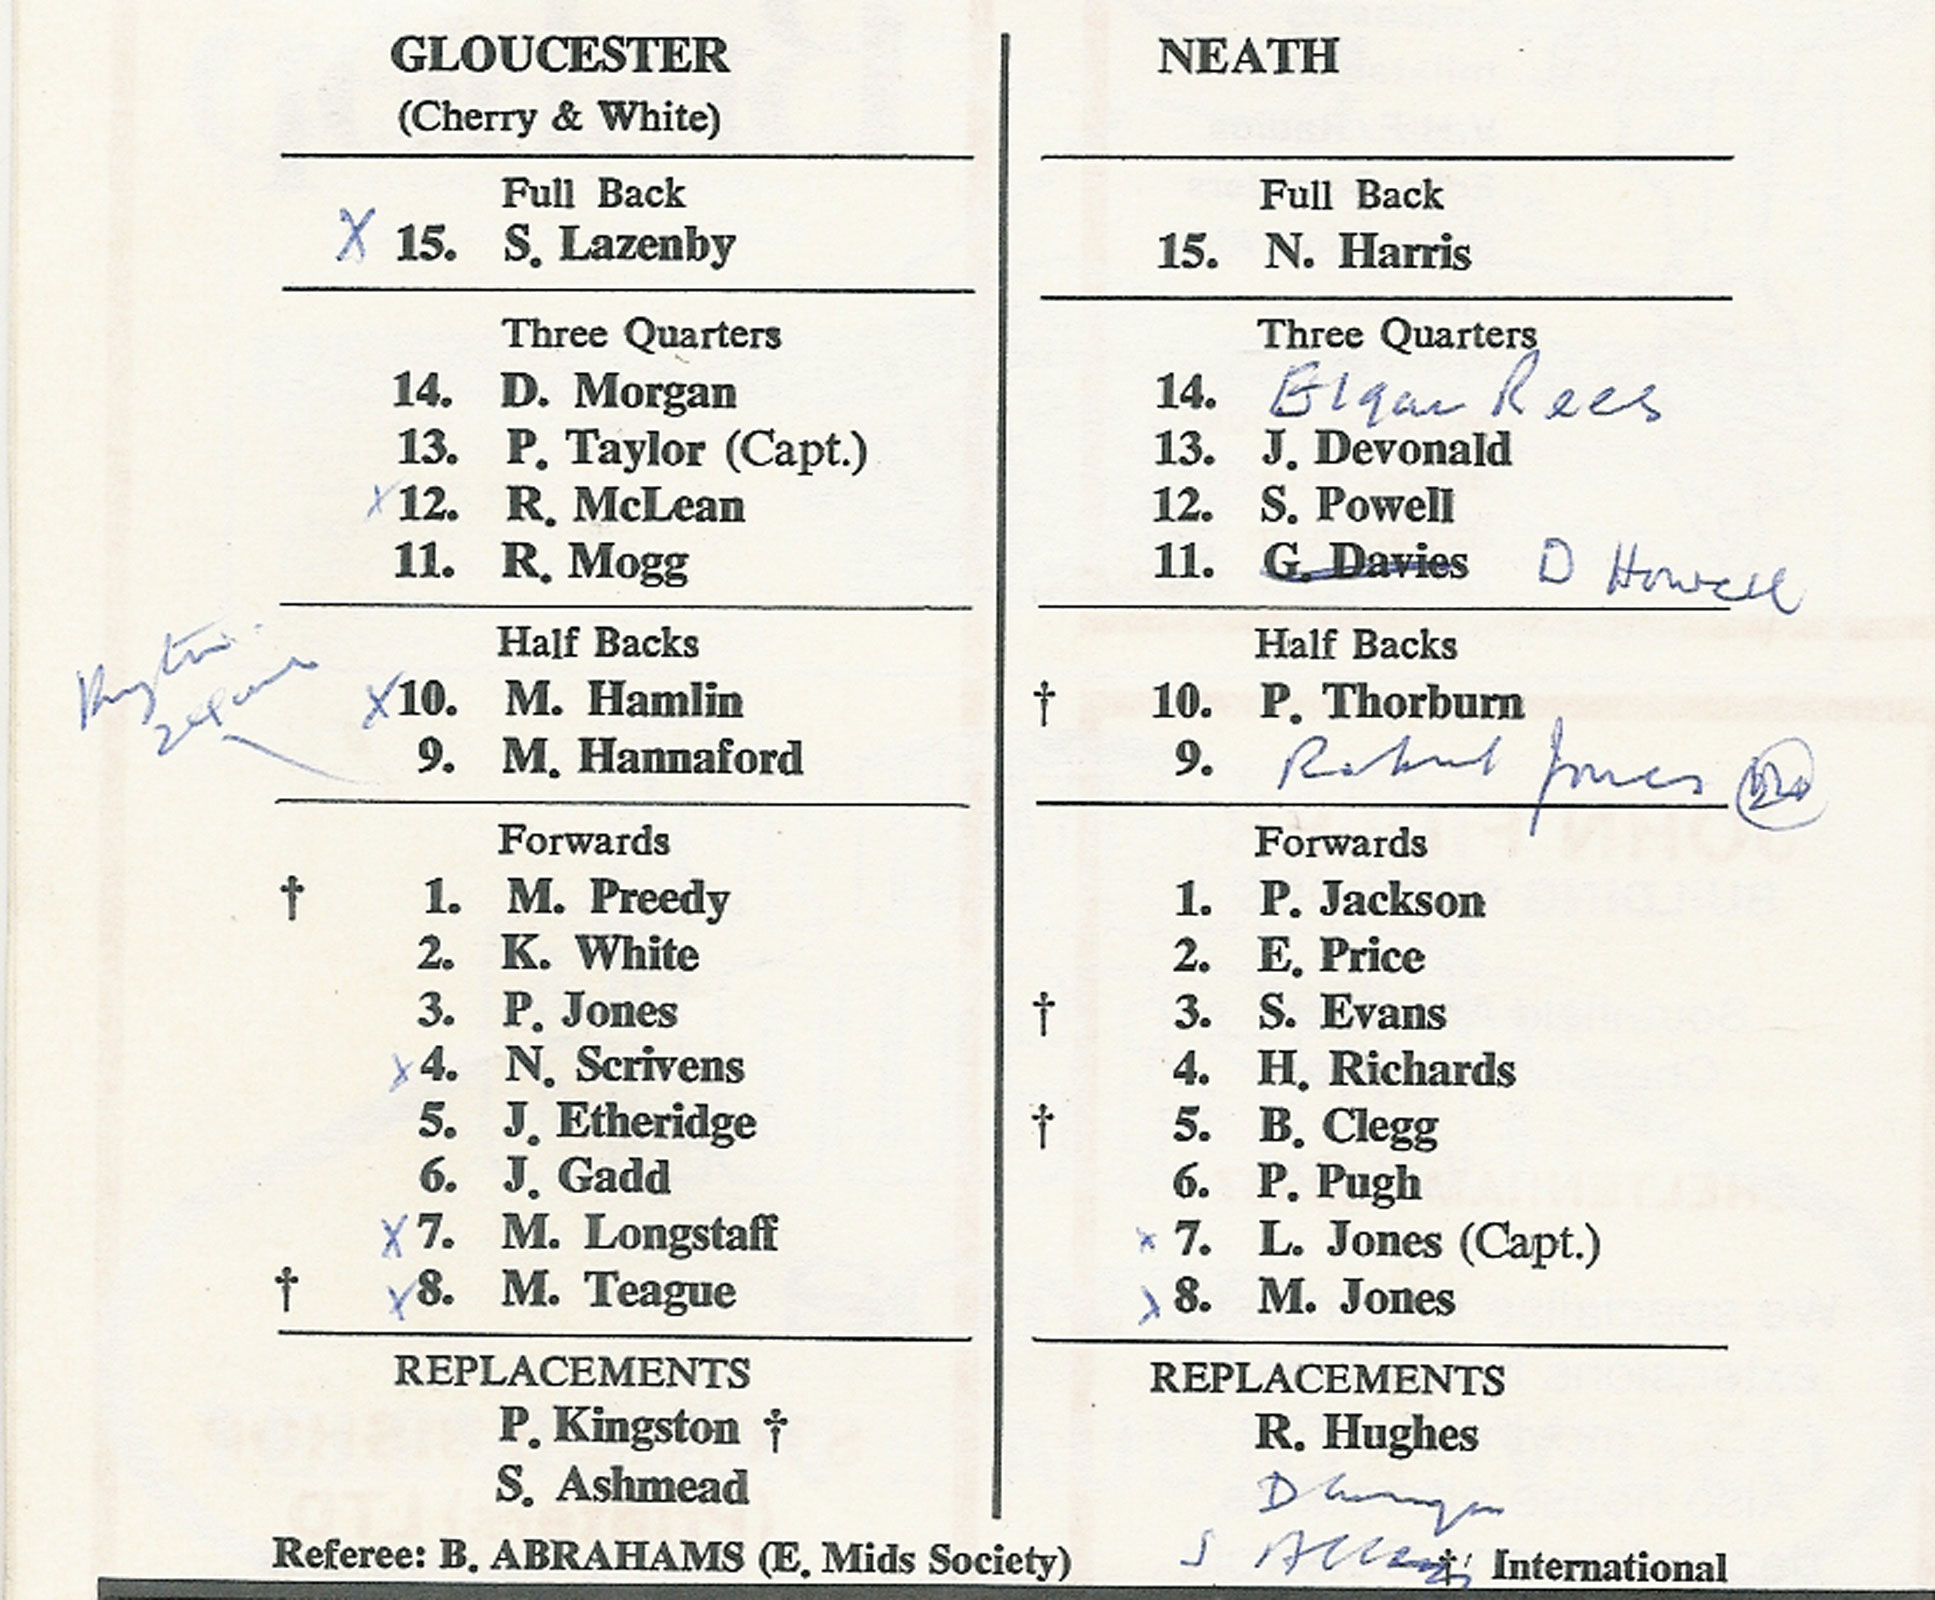 GLOUCESTER
(Cherry & White)
Full Back
X 15. S. Lazenby
Three Quarters
14. D. Morgan
13. P. Taylor (Capt.)
x 12. R. McLean
11. R. Mogg
Half Backs
X 10. M. Hamlin
9. M. Hannaford
Forwards
† 1. M. Preedy
2. K. White
3. P. Jones
x 4. N. Scrivens
5. J. Etheridge
6. J. Gadd
X 7. M. Longstaff
† x 8. M. Teague
REPLACEMENTS
P. Kingston †
S. Ashmead
Referee: B. ABRAHAMS (E. Mids Society)
NEATH
Full Back
15. N. Harris
Three Quarters
14. Elgar Rees
13. J. Devonald
12. S. Powell
11. G. Davies D Howell
Half Backs
† 10. P. Thorburn
9. Robert Jones
Forwards
1. P. Jackson
2. E. Price
† 3. S. Evans
4. H. Richards
† 5. B. Clegg
6. P. Pugh
x 7. L. Jones (Capt.)
x 8. M. Jones
REPLACEMENTS
R. Hughes
D
S
† International